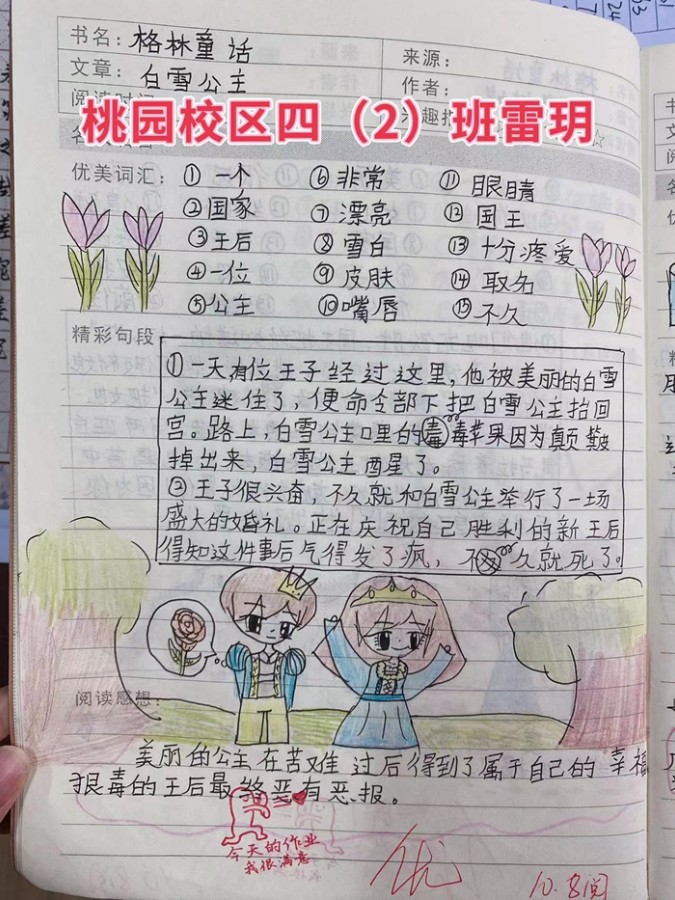 书名：格林童话
来源：
文章：白雪公主
作者：
桃园校区四（2）班雷玥
优美词汇：①一个 ⑥非常 ⑪眼睛
②国家 ⑦漂亮 ⑫国王
③王后 ⑧雪白 ⑬十分疼爱
④一位 ⑨皮肤 ⑭取名
⑤公主 ⑩嘴唇 ⑮不久
精彩句段
①一天,有位王子经过这里,他被美丽的白雪
公主迷住了,便命令部下把白雪公主抬回
宫。路上,白雪公主口里的毒苹果因为颠簸
掉出来,白雪公主酉星了。
②王子很兴奋,不久就和白雪公主举行了一场
盛大的婚礼。正在庆祝自己胜利的新王后
得知这件事后气得发了疯,不久就死了。
阅读感想：
美丽的公主在苦难过后得到了属于自己的幸福
狠毒的王后最终恶有恶报。
今天的作业
我很满意
优
10.8阅